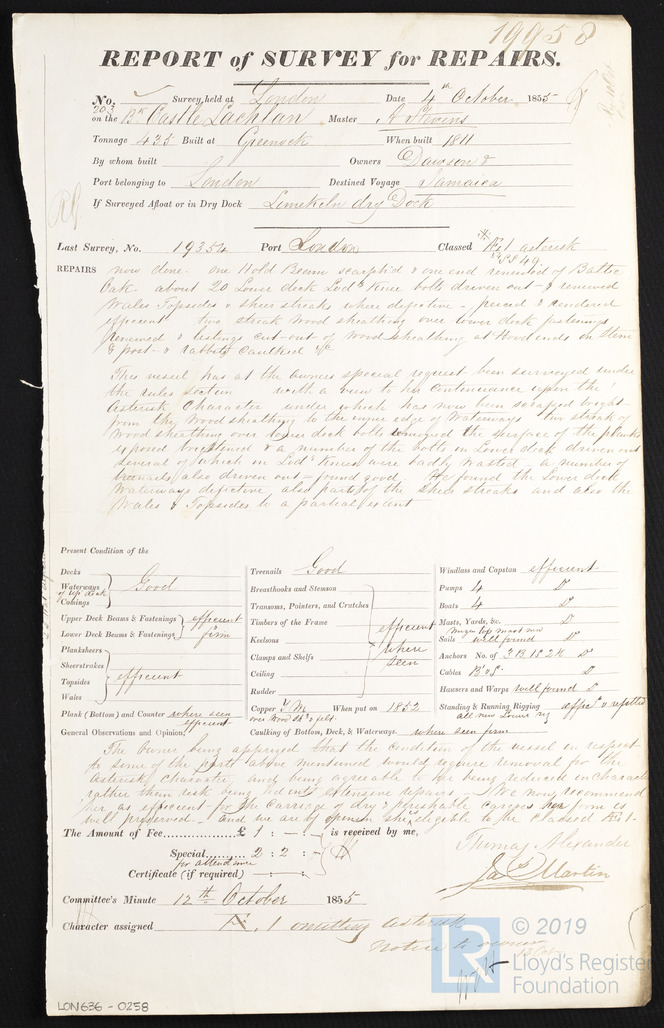 19958
REPORT of SURVEY for REPAIRS.
No. 203 Survey held at London Date 4th October 1855
on the Bk Castle Lachlan Master A Stevens
Tonnage 435 Built at Greenock When built 1811
By whom built Owners Dawson &
Port belonging to London Destined Voyage Jamaica
If Surveyed Afloat or in Dry Dock Limekiln dry Dock
Last Survey, No. 19354 Port London Classed Æ1 asterisk
49
REPAIRS now done. one Hold Beam scarph'd & one end renewed of Baltic
Oak about 20 Lower deck Lodg Knee bolts driven out & renewed
Wales Topsides & sheer streaks where defective - pieced & rendered
efficient two streak wood sheathing over lower deck fastenings
renewed & listings cut out of wood sheathing at Hood ends on Stem
& post & rabbits caulked &c
This vessel has at the owners special request been surveyed under
the rules section with a view to her continuance upon the
Asterisk Character under which has now been scraped bright
from the Wood sheathing to the inner edge of Waterways two streak of
Wood sheathing over lower deck bolts removed the surface of the planks
exposed & a number of the bolts in Lower deck driven out
several of which in Lodg Knees were badly wasted a number of
treenails also driven out - found good We found the Lower deck
Waterways defective also parts of the Sheer streaks and also the
Wales & Topsides to a partial extent
Present Condition of the
Decks
Waterways of top deck Good
Comings
Upper Deck Beams & Fastenings efficient
Lower Deck Beams & Fastenings firm
Planksheers
Sheerstrakes
Topsides efficient
Wales
Plank (Bottom) and Counter where seen efficient
Treenails Good
Breasthooks and Stemson
Transoms, Pointers, and Crutches
Timbers of the Frame efficient
Keelsons where
Clamps and Shelfs seen
Ceiling
Rudder
Copper Y M When put on 1852
over Wood Sh & felt
Caulking of Bottom, Deck, & Waterways where seen firm
Windlass and Capstan efficient
Pumps 4 Do
Boats 4 Do
Masts, Yards, &c. Do
Mizen top mast new
Sails well found Do
Anchors No. of 3 B 1 S 2 K Do
Cables Do
Hawsers and Warps well found Do
Standing & Running Rigging & refitted
all new Lower rig
General Observations and Opinion,
The Owner being apprized that the condition of the vessel in respect
to some of the parts above mentioned would require removal for the
Asterisk Character, and being agreeable to her being reduced in Character
rather than risk being put extensive repairs - We now recommend
her as efficient for the carriage of dry & perishable cargoes her form is
well preserved - and we are of opinion she is eligible to be classed Æ1.
The Amount of Fee £ 1 : - : - is received by me,
Special 2 : 2 : -
for attendance
Certificate (if required)
Thomas Alexander
Jas Martin
Committee's Minute 12th October 1855
Character assigned Æ 1 omitting asterisk
notice to owner
LR © 2019
Lloyd's Register
Foundation
LON636 - 0258